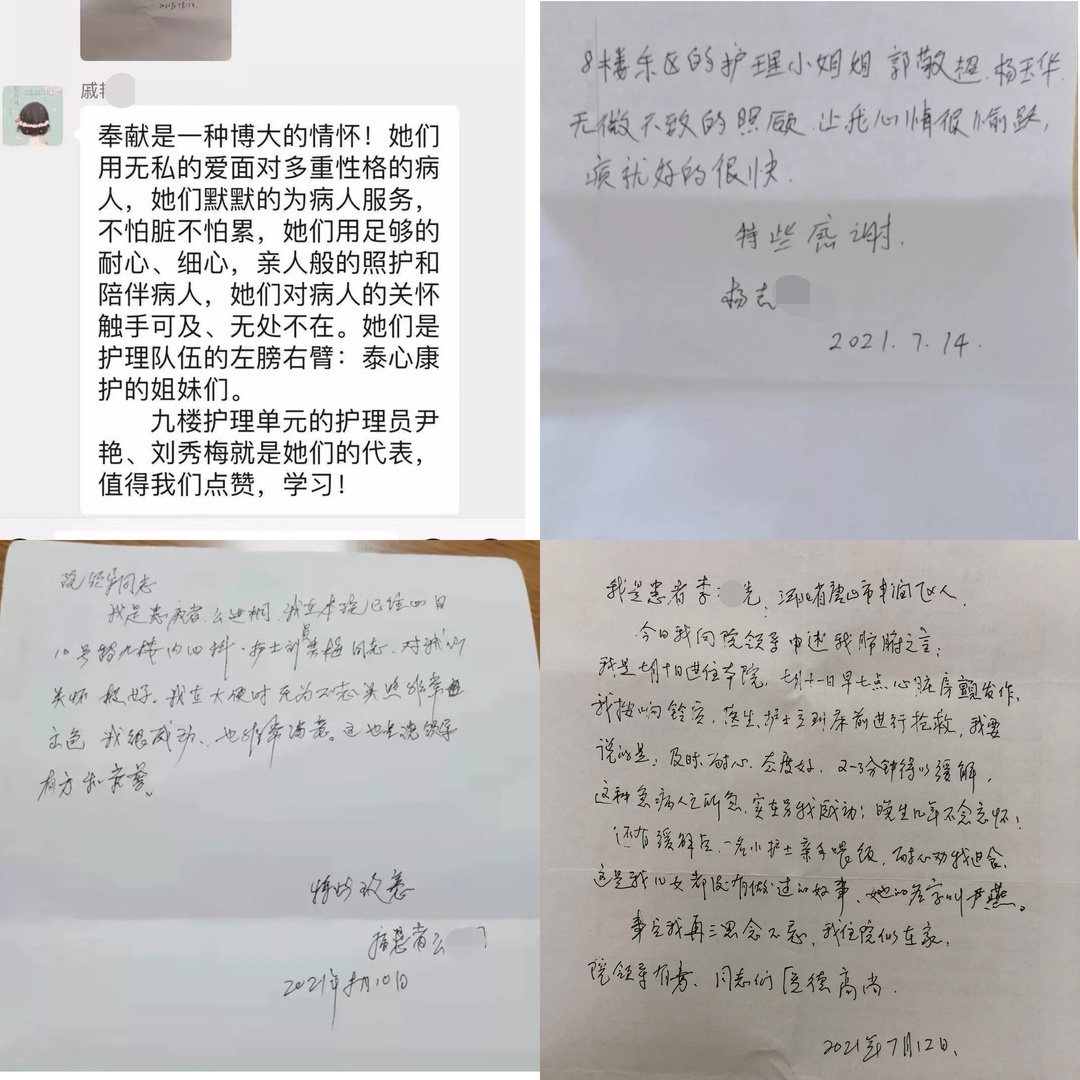 2021年7月12.
戚艳
奉献是一种博大的情怀！她们
用无私的爱面对多重性格的病
人，她们默默的为病人服务，
不怕脏不怕累，她们用足够的
耐心、细心，亲人般的照护和
陪伴病人，她们对病人的关怀
触手可及、无处不在。她们是
护理队伍的左膀右臂：泰心康
护的姐妹们。
九楼护理单元的护理员尹
艳、刘秀梅就是她们的代表，
值得我们点赞，学习！
8楼东区的护理小姐姐 郭敬超.杨玉华
无微不致的照顾.让我心情很愉跃,
病就好的很快.
特些感谢.
杨志
2021.7.14.
院领导同志
我是患病者 么进相.我在本院已经四日
10号转九楼内四科.护士刘秀梅同志.对我的
关怀极好.我在大便时无为不志关照非常出
出色 我很感动、也非常满意。这也是院领导
有方和荣誉。
特此致意
病患者么
2021年7月10日
我是患者李 光，河北省唐山市丰润区人.
今日我向院领导申述我肺腑之言:
我是七月十日进住本院，七月十一日早七点心脏房颤发作.
我按响铃完，医生、护士立到床前进行抢救，我要
说的是：及时、耐心、态度好、2-3分钟得以缓解，
这种急病人之所急，实在另我感动；晚生几年不念忘怀！
还有缓解后、一名小护士亲手喂饭，耐心劝我进食、
这是我儿女都没有做过的好事，她的名字叫尹燕。
事后我再三思念不忘，我住院似在家，
院领导有方、同志们医德高尚.
2021年7月12日、